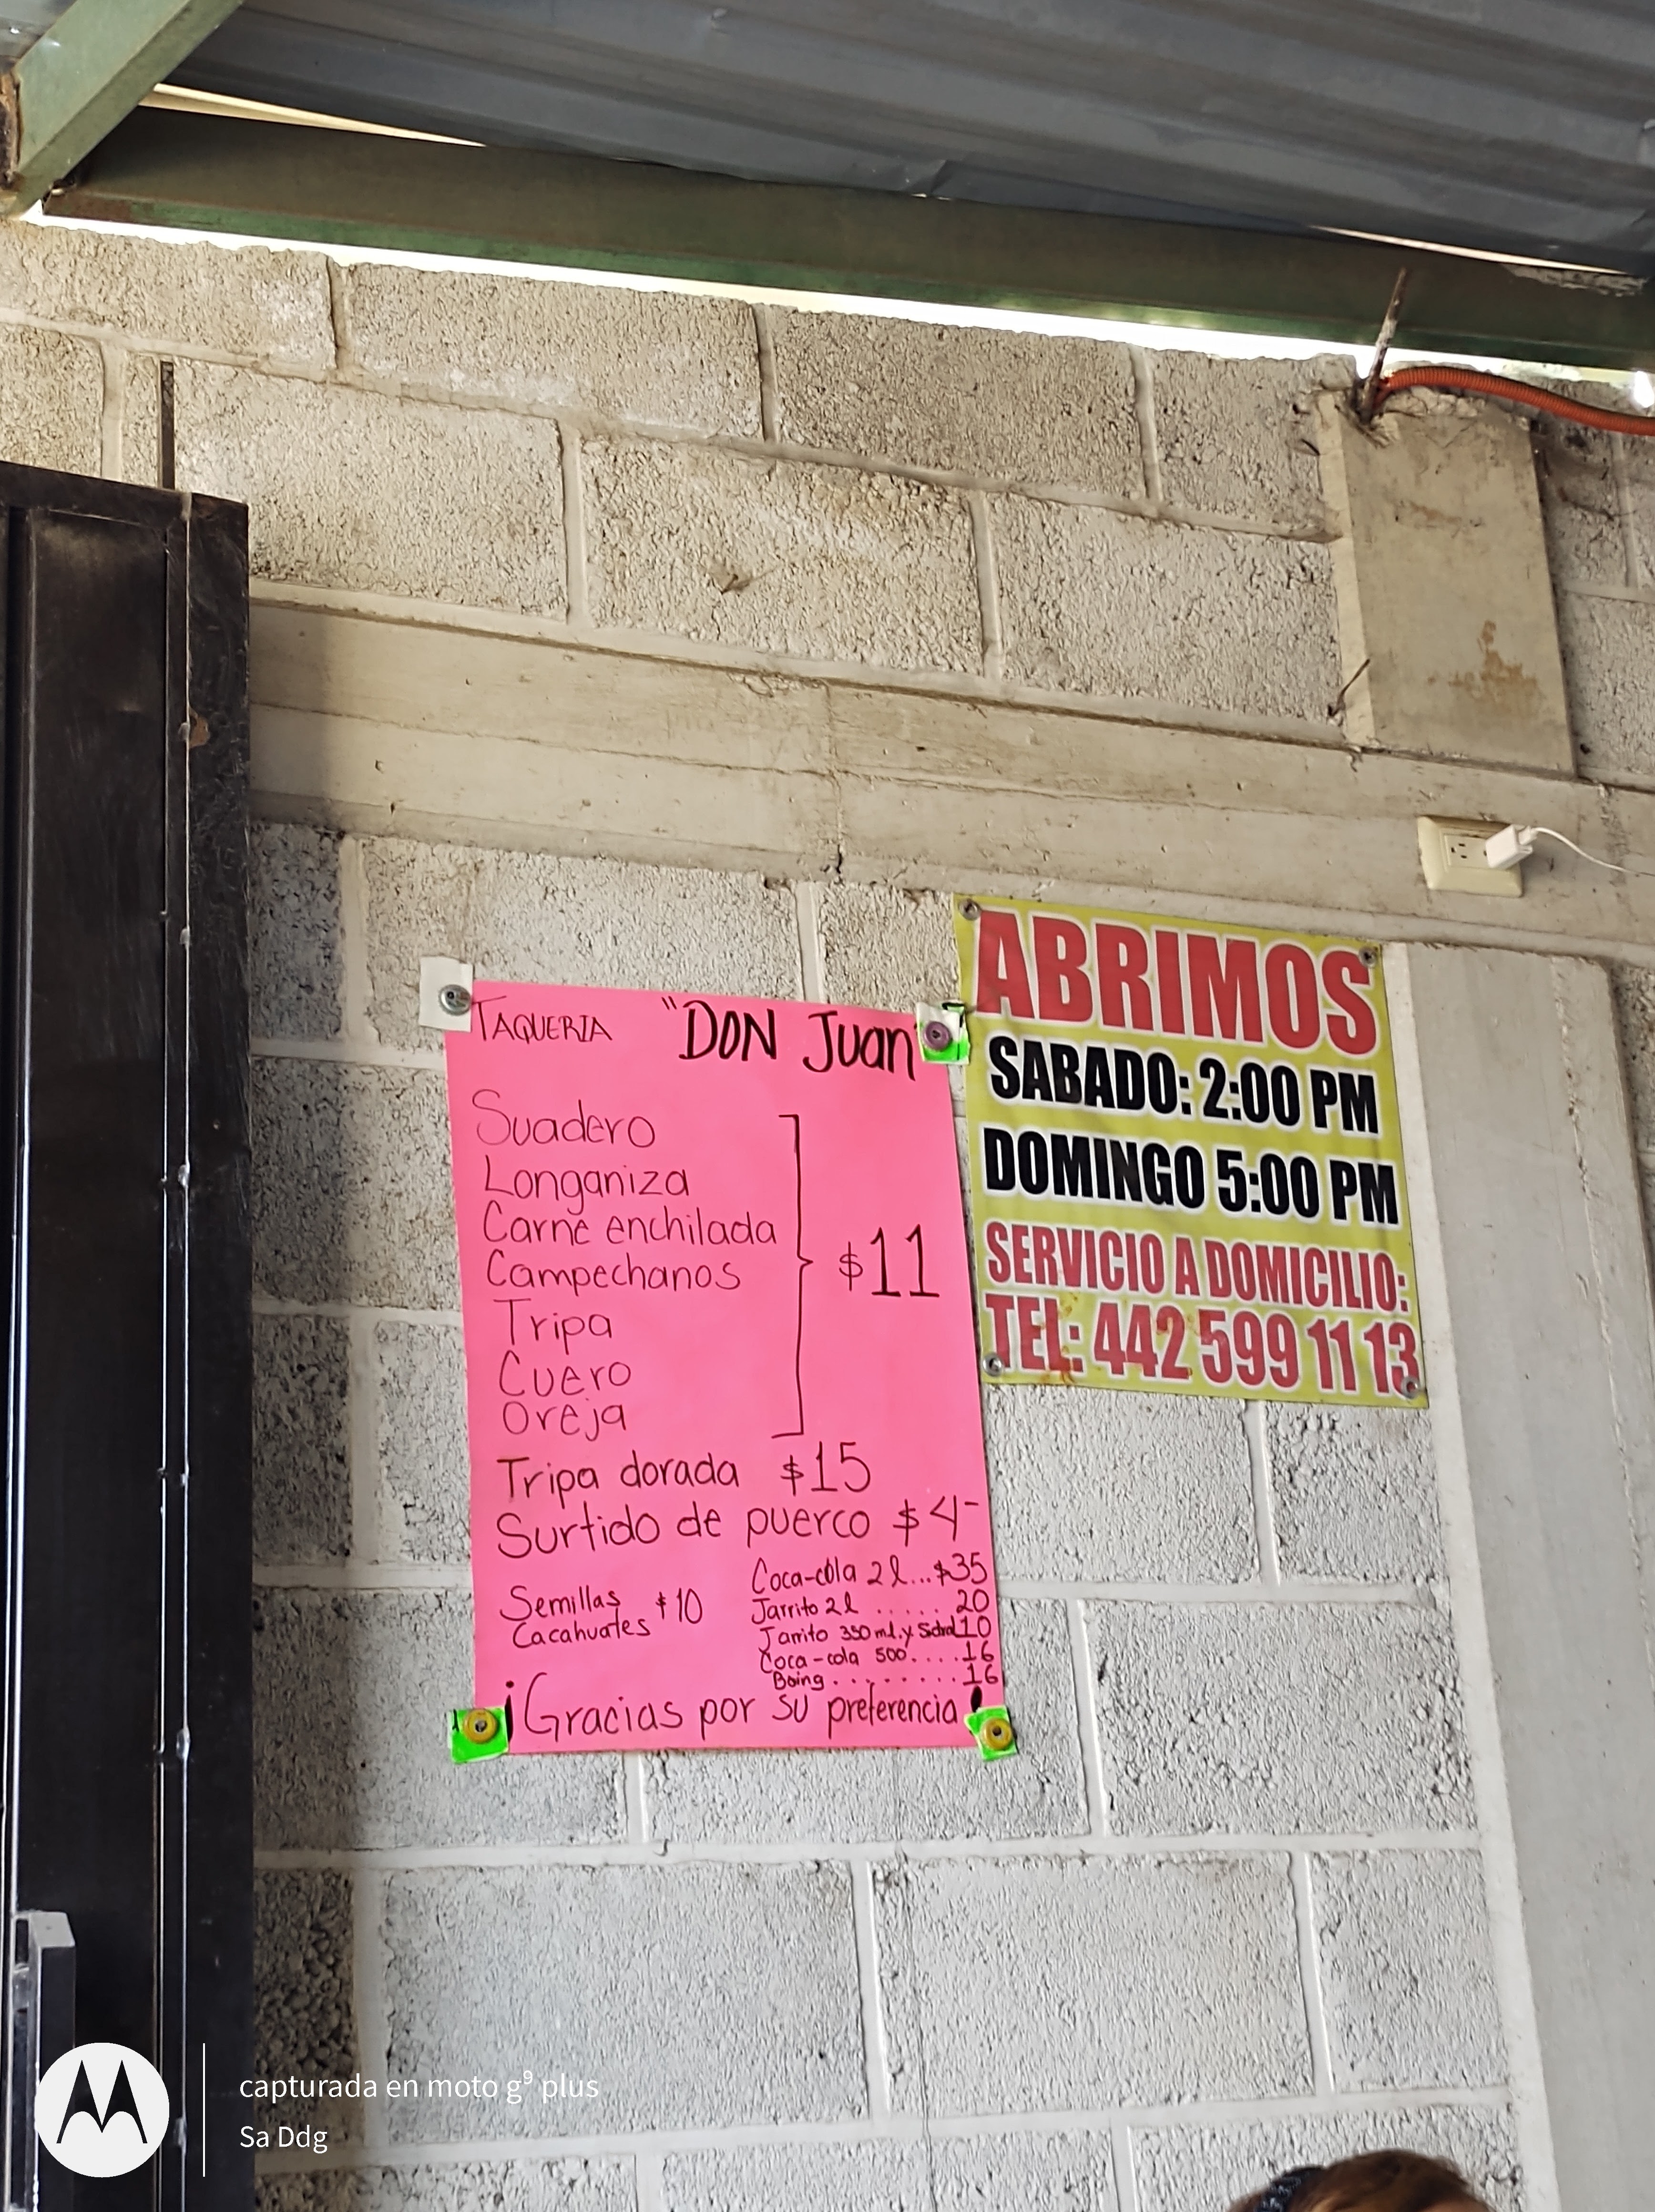 TAQUERIA "DON Juan"
Suadero
Longaniza
Carne enchilada
Campechanos
Tripa
Cuero
Oreja
$11
Tripa dorada $15
Surtido de puerco $4-
Semillas
Cacahuates $10
Coca-cola 2l...$35
Jarrito 2l ...... 20
Jarrito 350 ml. y Sidral 10
Coca-cola 500....16
Boing........16
¡Gracias por su preferencia!
ABRIMOS
SABADO: 2:00 PM
DOMINGO 5:00 PM
SERVICIO A DOMICILIO:
TEL: 442 599 11 13
capturada en moto g⁹ plus
Sa Ddg